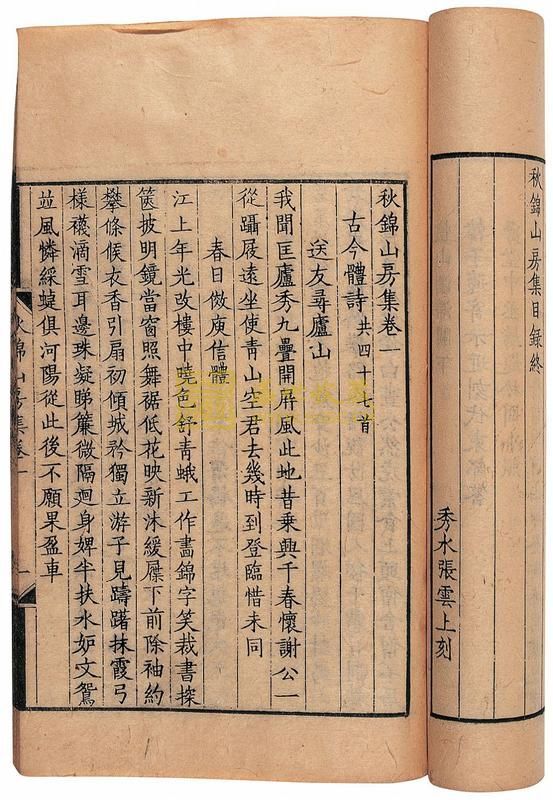 秋錦山房集目録終
秀水張雲上刻
秋錦山房集卷一
古今體詩 共四十七首
送友尋廬山
我聞匡廬秀九疊開屏風此地昔乘興千春懷謝公一
從躡屐遠坐使靑山空君去幾時到登臨惜未同
春日倣庾信體
江上年光改樓中曉色舒靑蛾工作畵錦字笑裁書探
篋披明鏡當窗照舞裾低花映新沐緩屧下前除袖約
攀條候衣香引扇初傾城矜獨立游子見躊躇抹霞弓
樣襪滴雪耳邊珠凝睇簾微隔廻身婢半扶水妒文鴛
竝風憐綵蜨俱河陽從此後不願果盈車
秋錦山房集卷一